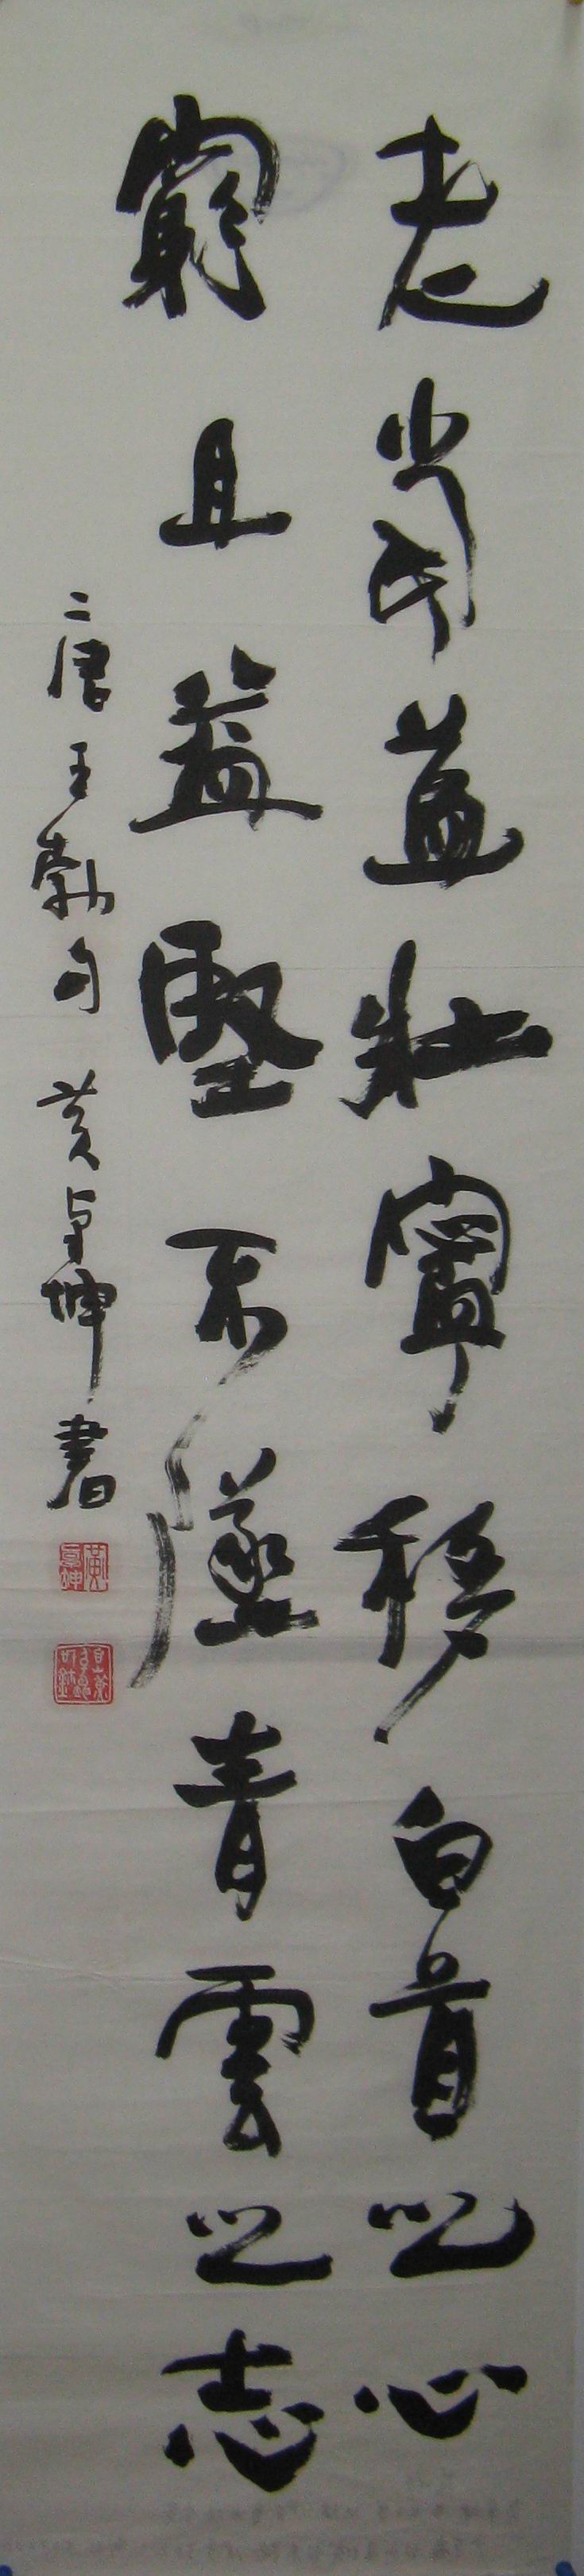 老當益壯寧移白首之心
窮且益堅不墜青雲之志
唐王勃句 黃卓坤書
黃卓坤